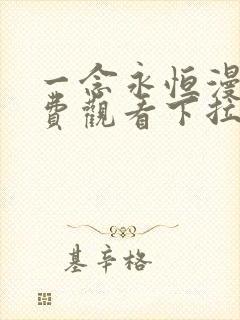 一念永恒漫
费觀看下拉
基辛格